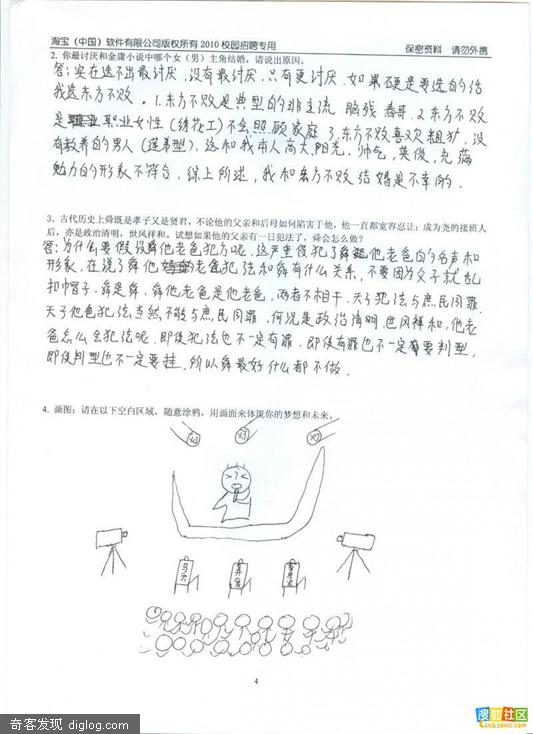 淘宝（中国）软件有限公司版权所有 2010 校园招聘专用
保密资料 请勿外携
2. 你最讨厌和金庸小说中哪个女（男）主角结婚，请说出原因。
答：实在选不出最讨厌，没有最讨厌，只有更讨厌．如果硬是要选的话
我选东方不败．1.东方不败是典型的非主流 脑残 春哥．2.东方不败
是职业女性（绣花工）不会照顾家庭 3.东方不败喜欢粗犷，没
有教养的男人（莲弟型），这和我本人高大，阳光，帅气，英俊，充满
魅力的形象不符合．综上所述，我和东方不败结婚是不幸的．
3. 古代历史上舜既是孝子又是贤君，不论他的父亲和后母如何陷害于他，他一直都宽容忍让；成为尧的接班人
后，亦是政治清明，世风祥和。试想如果他的父亲有一日犯法了，舜会怎么做？
答：为什么要假设舜他老爸犯法呢．这严重侵犯了舜他老爸的名声和
形象．在说了舜他老爸犯法和舜有什么关系，不要因为父子就乱
扣帽子．舜是舜，舜他老爸是他老爸，两者不相干．天子犯法与庶民同罪．
天子他爸犯法当然不能与庶民同罪．何况是政治清明，世风祥和，他老
爸怎么会犯法呢．即使犯法也不一定有罪．即使有罪也不一定要判型，
即使判型也不一定要挂．所以舜最好什么都不做．
4. 画图：请在以下空白区域，随意涂鸦，用画面来体现你的梦想和未来。
灯
4
奇客发现 diglog.com
搜狐社区
CLUB.SOHU.COM